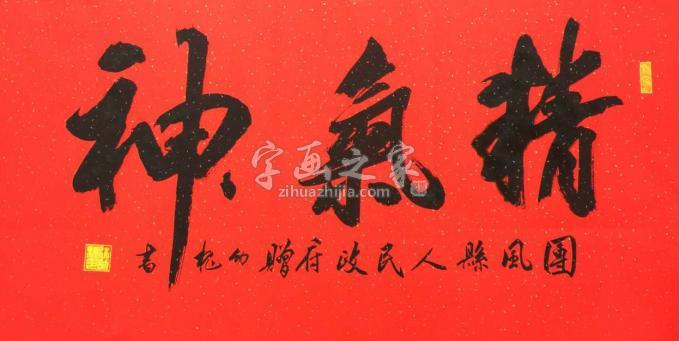 精氣神
團風縣人民政府贈 書
字画之家
zihuazhijia.com